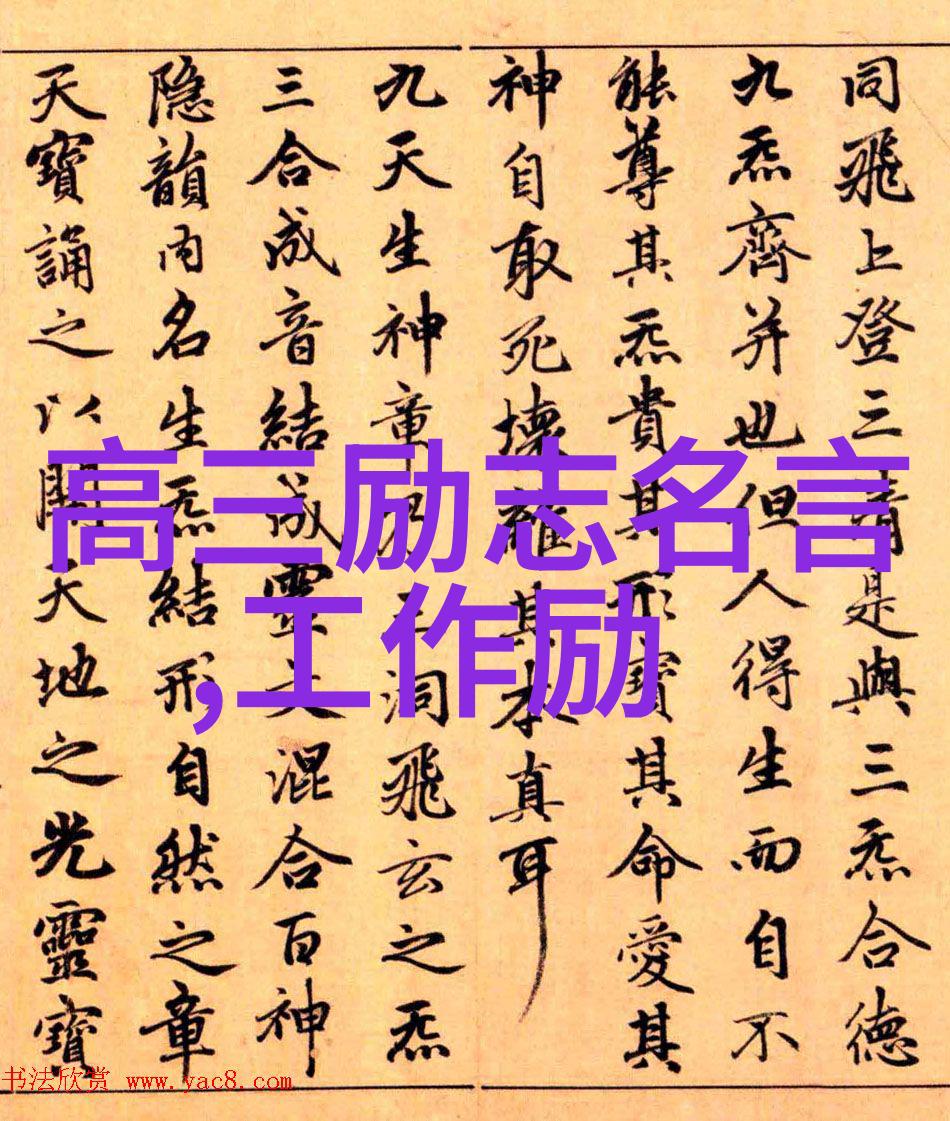 同飛上登三清是與三炁合德
九炁齊并也但人得生而自不
能尊其炁貴其形寶其命愛其
神自取死壞離其本真耳
九天生神章乃三洞飛玄之炁
三合成音結成靈文混合百神
隐韻内名生炁結形自然之章
天寶誦之以開天地之光靈寶
高三励志名言
,工作励
书法欣赏 www.yac8.com